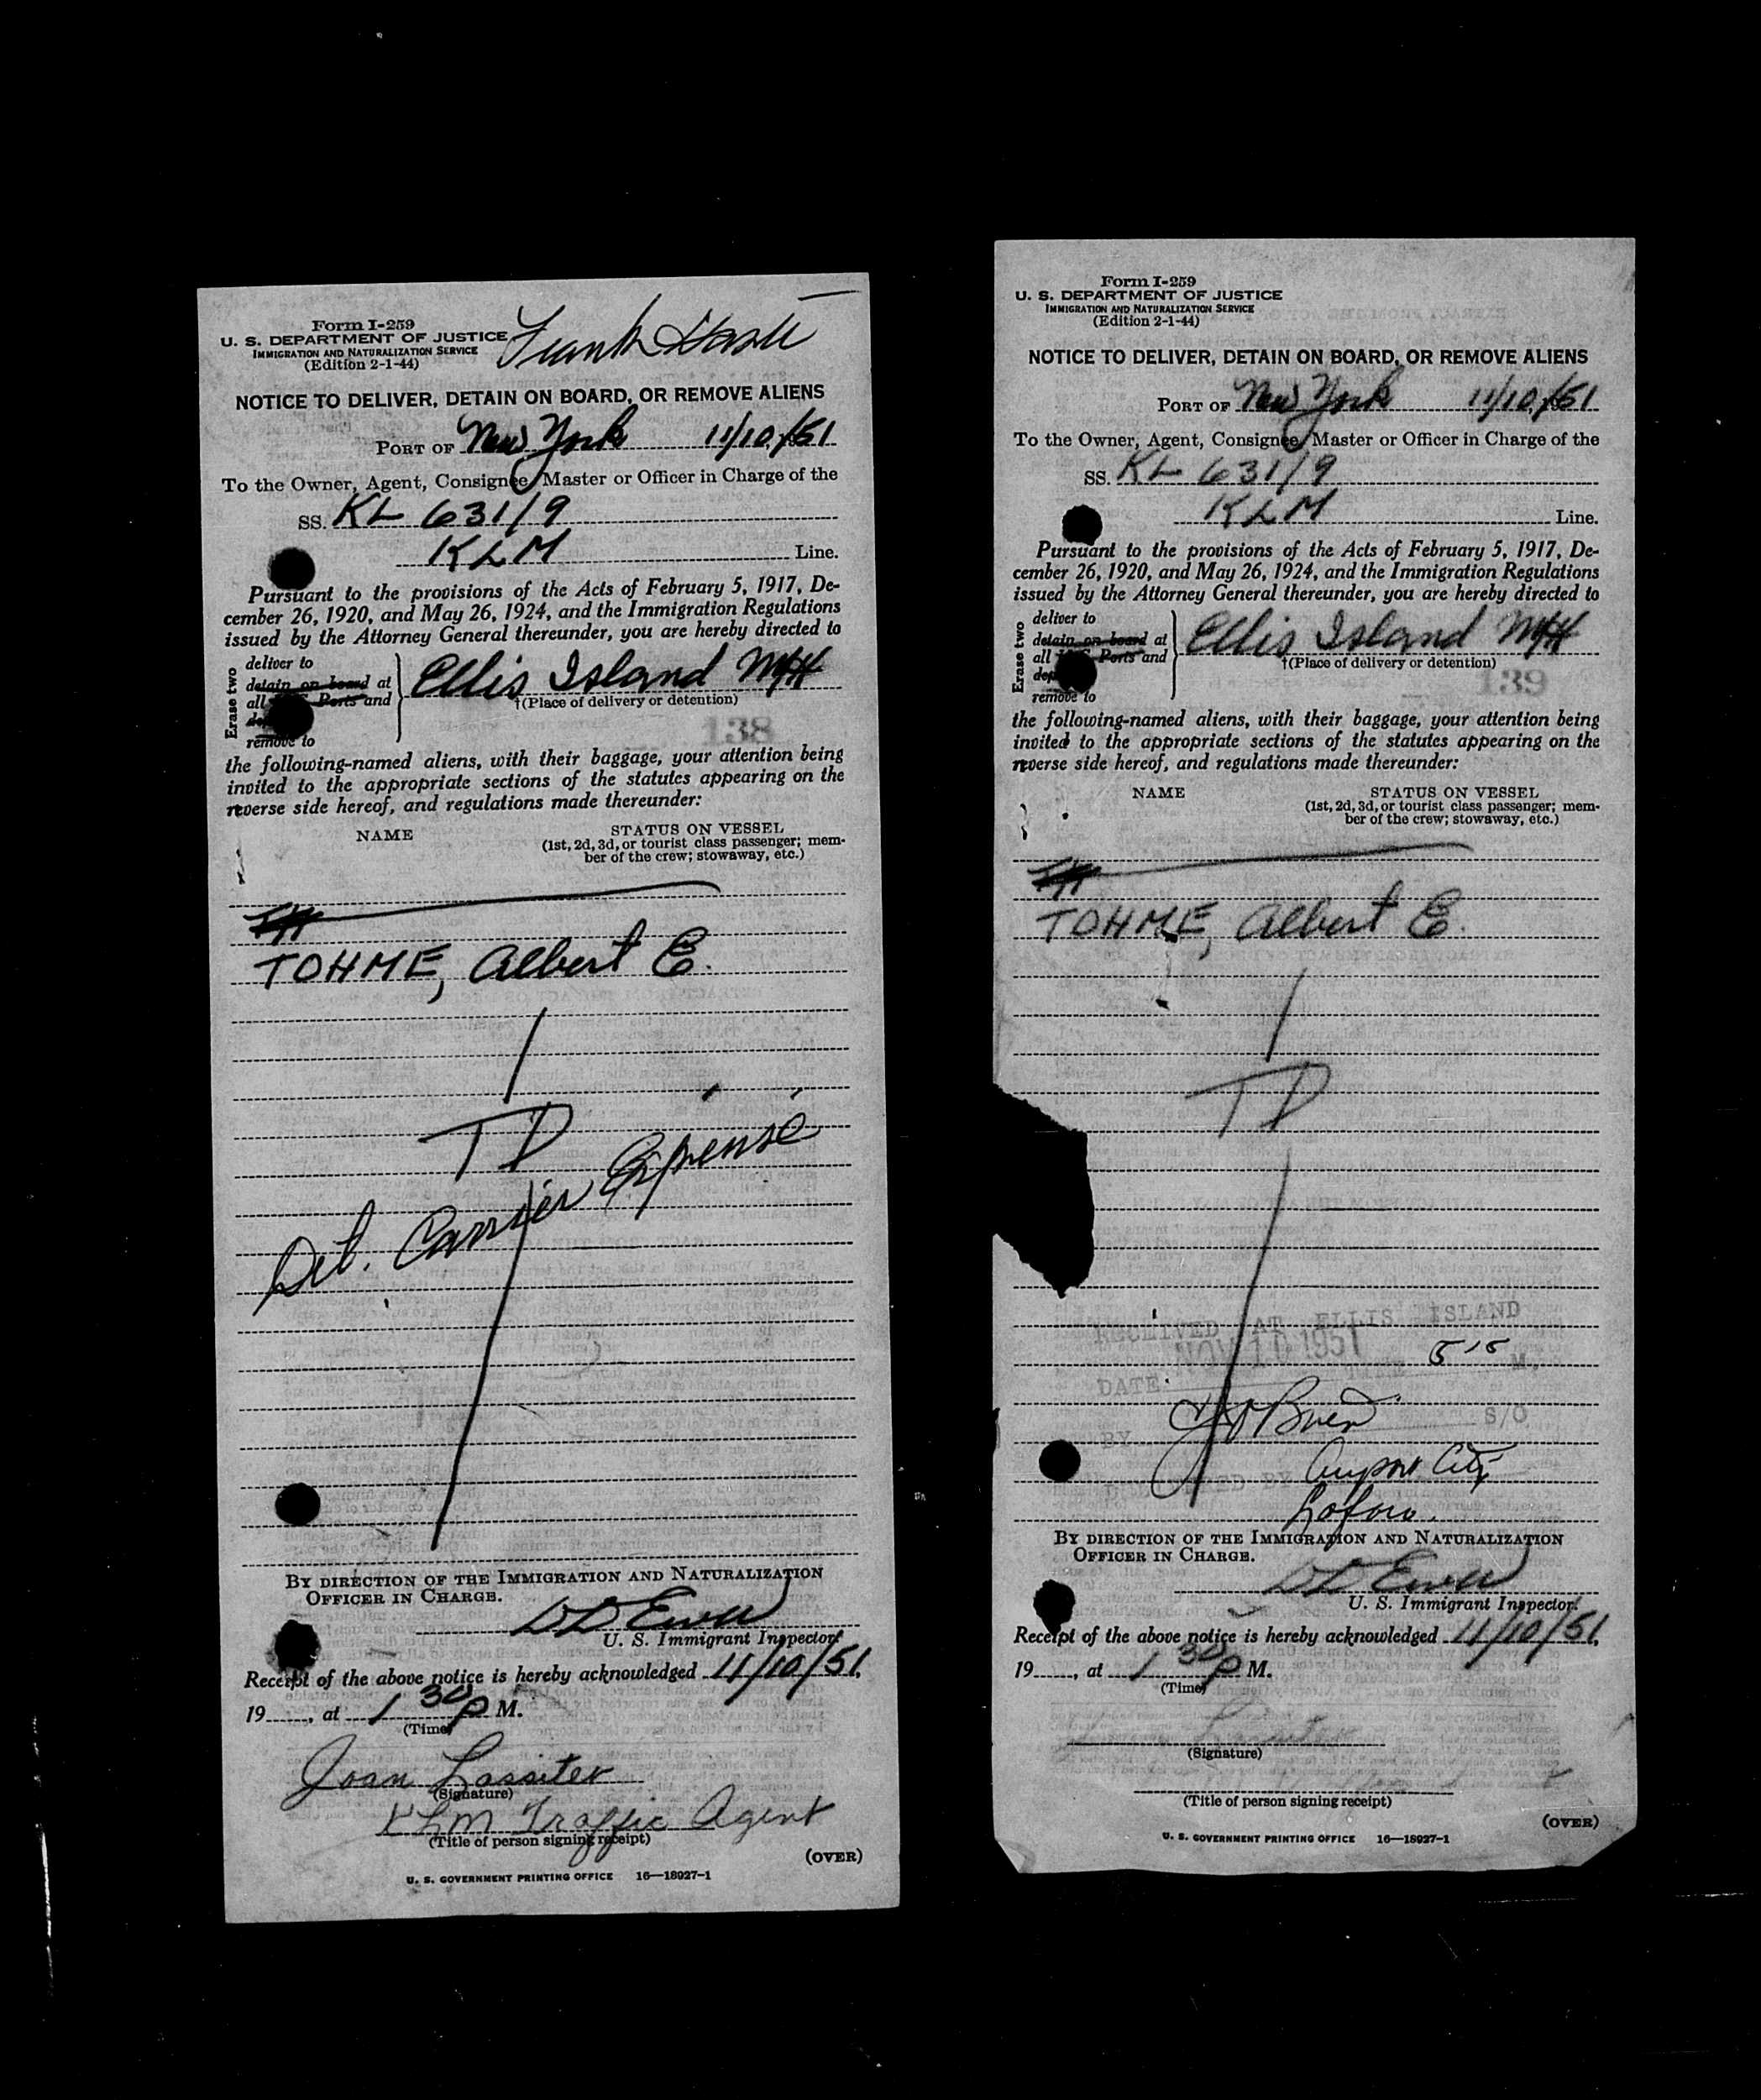 Form I-259
U. S. DEPARTMENT OF JUSTICE
IMMIGRATION AND NATURALIZATION SERVICE
(Edition 2-1-44)
Frank
NOTICE TO DELIVER, DETAIN ON BOARD, OR REMOVE ALIENS
PORT OF New York 11/10/51
To the Owner, Agent, Consignee, Master or Officer in Charge of the
SS. KL 631/9
KLM Line.
Pursuant to the provisions of the Acts of February 5, 1917, De-
cember 26, 1920, and May 26, 1924, and the Immigration Regulations
issued by the Attorney General thereunder, you are hereby directed to
Erase two
deliver to
detain on board at
all Ports and
remove to
Ellis Island
†(Place of delivery or detention)
138
the following-named aliens, with their baggage, your attention being
invited to the appropriate sections of the statutes appearing on the
reverse side hereof, and regulations made thereunder:
NAME STATUS ON VESSEL
(1st, 2d, 3d, or tourist class passenger; mem-
ber of the crew; stowaway, etc.)
TOHME, Albert E.
TD
Det. Carrier Expense
BY DIRECTION OF THE IMMIGRATION AND NATURALIZATION
OFFICER IN CHARGE.
U. S. Immigrant Inspector.
Receipt of the above notice is hereby acknowledged 11/10/51,
19, at 1 30 P M.
(Time)
Joan Lassiter
(Signature)
KLM Traffic Agent
(Title of person signing receipt)
(OVER)
U. S. GOVERNMENT PRINTING OFFICE 16—18927-1
Form I-259
U. S. DEPARTMENT OF JUSTICE
IMMIGRATION AND NATURALIZATION SERVICE
(Edition 2-1-44)
NOTICE TO DELIVER, DETAIN ON BOARD, OR REMOVE ALIENS
PORT OF New York 11/10/51
To the Owner, Agent, Consignee, Master or Officer in Charge of the
SS. KL 631/9
KLM Line.
Pursuant to the provisions of the Acts of February 5, 1917, De-
cember 26, 1920, and May 26, 1924, and the Immigration Regulations
issued by the Attorney General thereunder, you are hereby directed to
Erase two
deliver to
detain on board at
all Ports and
remove to
Ellis Island
†(Place of delivery or detention)
139
the following-named aliens, with their baggage, your attention being
invited to the appropriate sections of the statutes appearing on the
reverse side hereof, and regulations made thereunder:
NAME STATUS ON VESSEL
(1st, 2d, 3d, or tourist class passenger; mem-
ber of the crew; stowaway, etc.)
TOHME, Albert E.
TD
RECEIVED AT ELLIS ISLAND
DATE NOV 10 1951 TIME 5 15 M.
BY S/O
BY
BY DIRECTION OF THE IMMIGRATION AND NATURALIZATION
OFFICER IN CHARGE.
U. S. Immigrant Inspector.
Receipt of the above notice is hereby acknowledged 11/10/51,
19, at 1 30 P M.
(Time)
Lassiter
(Signature)
(Title of person signing receipt)
(OVER)
U. S. GOVERNMENT PRINTING OFFICE 16—18927-1